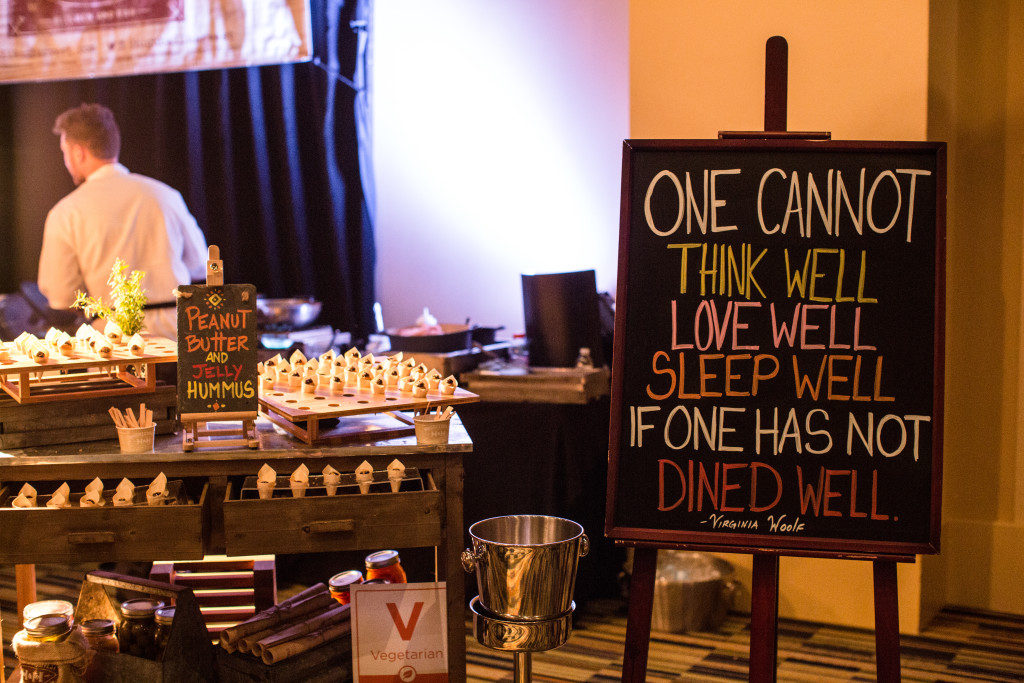 PEANUT
BUTTER
AND
JELLY
HUMMUS
ONE CANNOT
THINK WELL
LOVE WELL
SLEEP WELL
IF ONE HAS NOT
DINED WELL.
-VIRGINIA WOOLF
V
Vegetarian